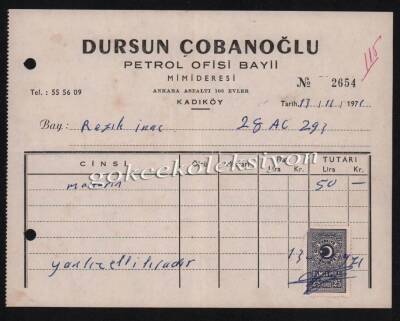 115
DURSUN ÇOBANOĞLU
PETROL OFİSİ BAYİİ
MİMİDERESİ
ANKARA ASFALTI 100 EVLER
KADIKÖY
Tel. : 55 56 09
№ 2654
Tarih 13/11/1971
Bay: Razık inaç 28 AC 293
CİNSİ TUTARI
Lira Kr. Lira Kr.
mazotin 50 —
gokcekoleksiyon
yanlız elli liradır
13 971